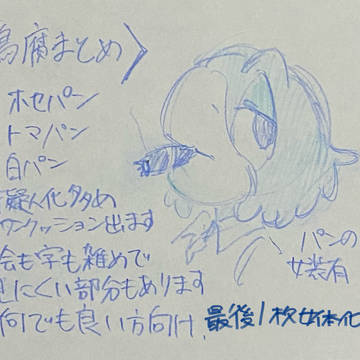 鳥腐まとめ〉
ホセパン
トマパン
白パン
擬人化多め
ワンクッション出ます
絵も字も雑めで
にくい部分もあります
何でも良い方向け、
最後1枚女体化
パンの
女装有